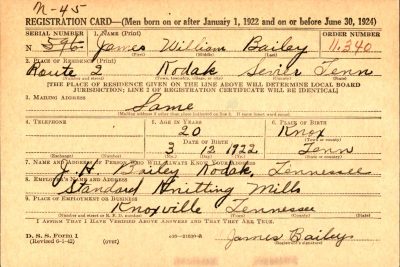 N-45
REGISTRATION CARD—(Men born on or after January 1, 1922 and on or before June 30, 1924)
SERIAL NUMBER 1. NAME (Print) ORDER NUMBER
N 595 James William Bailey 11,340
(First) (Middle) (Last)
2. PLACE OF RESIDENCE (Print)
Route 2 Kodak Sevier Tenn
[THE PLACE OF RESIDENCE GIVEN ON THE LINE ABOVE WILL DETERMINE LOCAL BOARD
JURISDICTION; LINE 2 OF REGISTRATION CERTIFICATE WILL BE IDENTICAL]
3. MAILING ADDRESS
Same
[Mailing address if other than place indicated on line 2. If same insert word same]
4. TELEPHONE 5. AGE IN YEARS 6. PLACE OF BIRTH
20 Knox
DATE OF BIRTH (Town or county)
3 12 1922 Tenn
(Mo.) (Day) (Yr.) (State or country)
7. NAME AND ADDRESS OF PERSON WHO WILL ALWAYS KNOW YOUR ADDRESS
J. H. Bailey Kodak, Tennessee
8. EMPLOYER'S NAME AND ADDRESS
Standard Knitting Mills
9. PLACE OF EMPLOYMENT OR BUSINESS
Knoxville Tennessee
(Number and street or R. F. D. number) (Town) (County) (State)
I AFFIRM THAT I HAVE VERIFIED ABOVE ANSWERS AND THAT THEY ARE TRUE.
D. S. S. Form 1
(Revised 6-1-42) (over) James Bailey
(Registrant's signature)